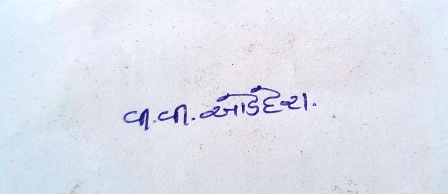 વી.વી.ઓડેદરા.